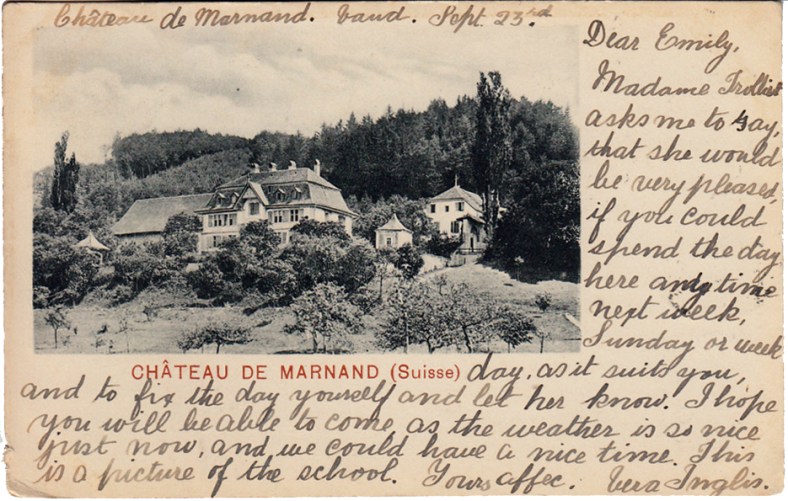 Château de Marnand. Vaud. Sept 23rd
Dear Emily,
Madame Trolliet
asks me to say,
that she would
be very pleased,
if you could
spend the day
here any time
next week,
Sunday or week
CHÂTEAU DE MARNAND (Suisse)
day, as it suits you,
and to fix the day yourself and let her know. I hope
you will be able to come, as the weather is so nice
just now, and we could have a nice time. This
is a picture of the school. Yours affec. Vera Inglis.